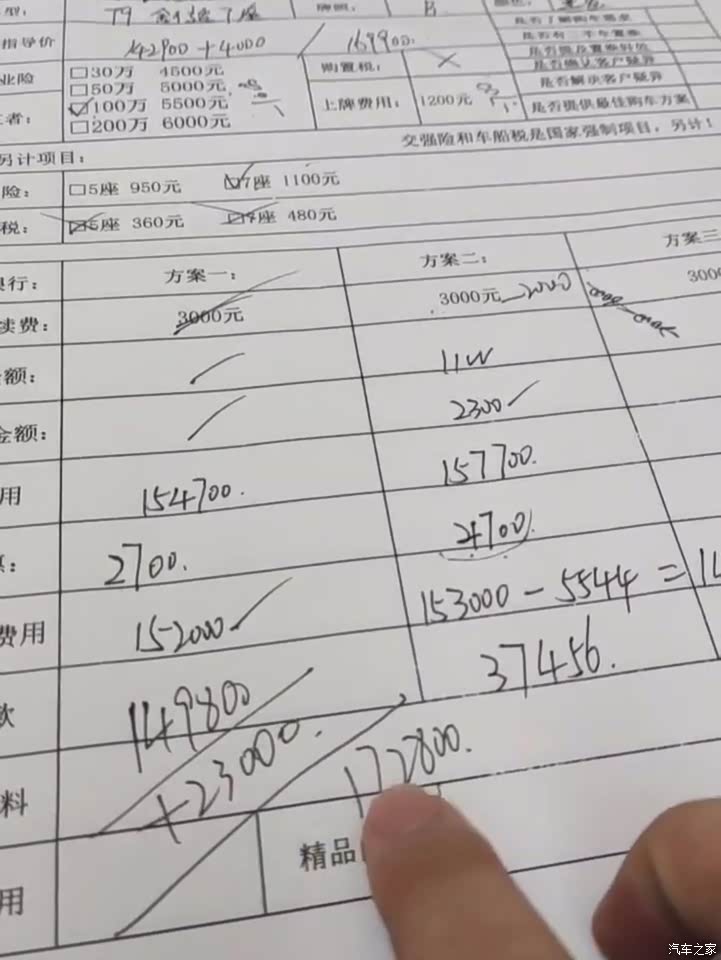 型： T9 7座 牌照： B
指导价 142900+4000 / 169900.
是否有二手车置换
业险 □30万 4500元 购置税： ×
□50万 5000元
者： ☑100万 5500元 上牌费用： 1200元 是否提供最佳购车方案
□200万 6000元
是否解决客户疑异
交强险和车船税是国家强制项目，另计！
另计项目：
险： □5座 950元 ☑7座 1100元
税： 座 360元 座 480元
银行： 方案一： 方案二： 方案三
续费： 3000元 3000元 2000 3000
金额： 11W
金额： 2300
用 154700. 157700.
2700. 4700.
费用 152000 153000-5544=14
款 149800 37456.
料 +23000. 172800.
用 精品
汽车之家